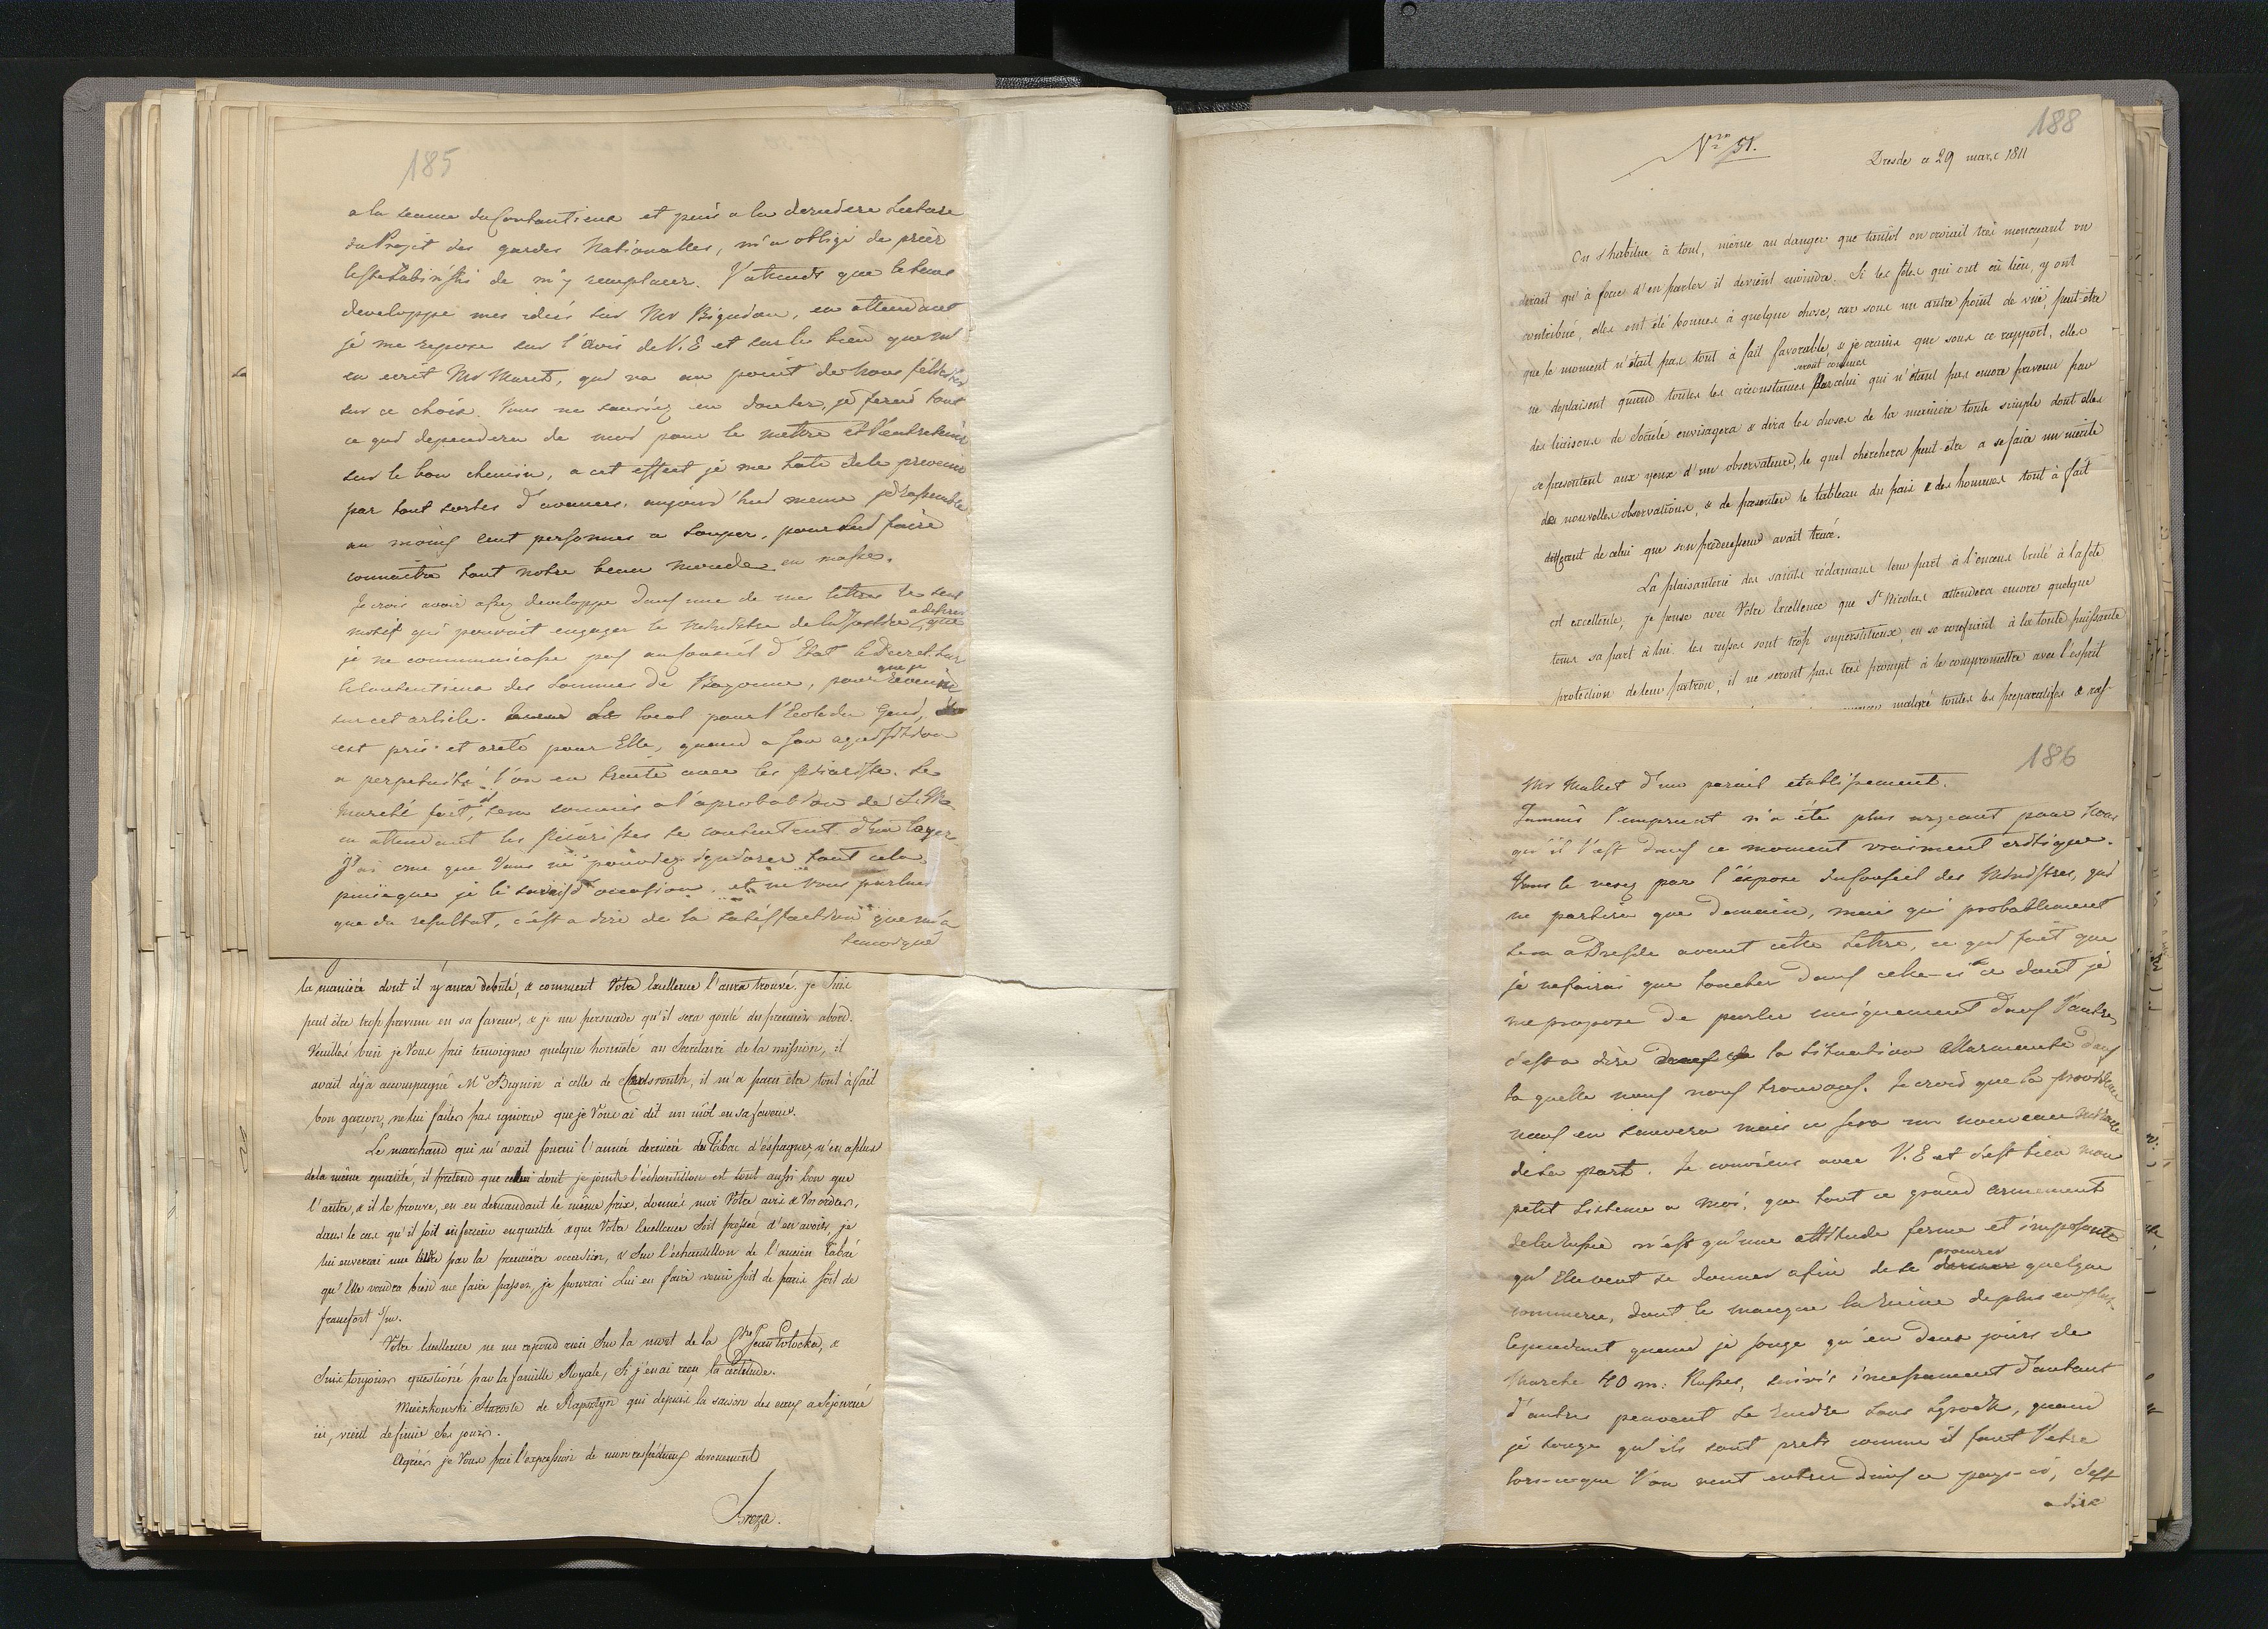 185
a la seance du Contentieux et puis a la derniere Lecture
du Projet des gardes Nationalles, m'a obligé de prier
de m'y remplacer. J'attends que le tems
developpe mes idées sur Mr Bignon, en attendant
je me repose sur l'avis de V.E et sur le bien que m'
en ecrit Mr Maret, qui va au point de nous féliciter
sur ce choix. Vous ne sauriez en douter, je ferai tout
ce qui dependera de moi pour le mettre et l'entretenir
sur le bon chemin, a cet effect je me hate de le prevenir
par tout sortes d'avances, aujourd'hui meme je rassemble
au moins cent personnes a souper, pour lui faire
connaitre tout notre beau monde en masse.
Je crois avoir assez developpe dans une de mes lettres le seul
motif qui pouvait engager le Ministre de la Justice a desirer que
je ne communicasse pas au Conseil d'Etat le Decret sur
le Contentieux des Sommes de Bayonne, pour que je revienne
sur cet article. Le local pour l'Ecole du Genie,
est pris et areté pour Elle, quand a son aquisition
a perpetuité l'on en traite avec les Piaristes. Le
marché fait, il sera soumis a l'aprobation de S.M.
en attendant les Piaristes se contentent d'un loyer
J'ai crue que Vous ne pouviez ignorer tout cela
puisque je le savais d'occasion, et ne Vous parlais
que du resultat, c'est a dire de la satisfaction que m'a
temoigné
la maniere dont il y aura debuté, & comment Votre Excellence l'aura trouvé. je suis
peut être trop prevenu en sa faveur, & je me persuade qu'il sera gouté du premier abord.
Veuillés bien je Vous prie temoigner quelque honneteté au Secretaire de la mission, il
avait déja accompagné Mr Bignon à celle de Carlsrouth, il m'a paru etre tout à fait
bon garçon, ne lui faites pas ignorer que je Vous ai dit un mot en sa faveur.
Le marchand qui m'avait fourni l'année derniere du Tabac d'espagne, n'en a plus
de la même qualité, il pretend que celui dont je joint l'échantillon est tout aussi bon que
l'autre, & il le prouve, en en demandant le même prix, donnés moi Votre avis & Vos ordres,
dans le cas qu'il soit inferieur en qualité & que Votre Excellence soit pressée d'en avoir, je
lui enverrai une livre par la premiere occasion, & sur l'echantillon de l'ancien Tabac
qu'Elle voudra bien me faire passer, je pourrai Lui en faire venir soit de paris soit de
francfort s/m.
Votre Excellence ne me repond rien sur la mort de la Ctsse Jean Potocka, &
suis toujours questioné par la famille Royale, si j'en ai reçu la certitude.
Mierzkowski Staroste de Rapsztyn qui depuis la saison des eaux a sejourné
ici, vient de finir ses jours.
Agréés je Vous prie l'expression de mon respectueux devouement
Breza.
188
Nro 51.
Dresde ce 29 mars 1811
On s'habitue à tout, même au danger que tantôt on croiait trés menaçant on
dirait qu'à force d'en parler il devient moindre. Si les fêtes qui ont eû lieu, y ont
contribué, elles ont été bonnes à quelque chose, car sous un autre point de vuë, peut-etre
que le moment n'était pas tout à fait favorable, & je crains que sous ce rapport, elles
ne deplaisent quand toutes les circonstances seront connues par celui qui n'étant pas encore prevenu par
des liaisons de Société envisagera & dira les choses de la maniere toute simple dont elles
se presentent aux yeux d'un observateur, le quel cherchera peut-etre a se faire un merite
des nouvelles observations, & de presenter le tableau du païs & des hommes tout à fait
different de celui que son predecesseur avait tracé.
La plaisanterie des saints réclamans leur part à l'encens brulé à la fete
est excellente, je pense avec Votre Excellence que St Nicolas attendera encore quelque
tems sa part à lui. les russes sont trop superstitieux, en se confiant à la toute puissante
protection de leur patron, il ne seront pas tres prompt à le compromettre avec l'esprit
malgré toutes les preparatifs & ras-
186
Mr Malet d'un pareil etablissement.
Jamais l'emprunt n'a été plus urgeant pour Nous
qu'il l'est dans ce moment vraiment critique.
Vous le verez par l'expose du Conseil des Ministres, qui
ne partira que demain, mais qui probablement
sera a Dresde avant cette lettre, ce qui fait que
je ne fairai que toucher dans celle-ci ce dont je
me propose de parler uniquement dans l'autre,
c'est a dire la situation allarmente dans
la quelle nous nous trouvons. Je crois que la providence
nous en sauvera mais ce sera un nouveau miracle
de sa part. Je conviens avec V.E et c'est bien mon
petit sisteme a moi, que tout ce grand armement
de la Russie n'est qu'une attitude ferme et imposante
qu'Elle veut se donner afin de se procurer quelque
commerce, dont le manque la ruine de plus en plus.
Cependant quand je songe qu'en deux jours de
marche 40 m: Russes, suivis incessament d'autant
d'autres peuvent se rendre sous Serock, quand
je songe qu'ils sont prets comme il faut l'etre
lors-ce-que l'on veut entrer dans ce pays-ci, c'est
a dire